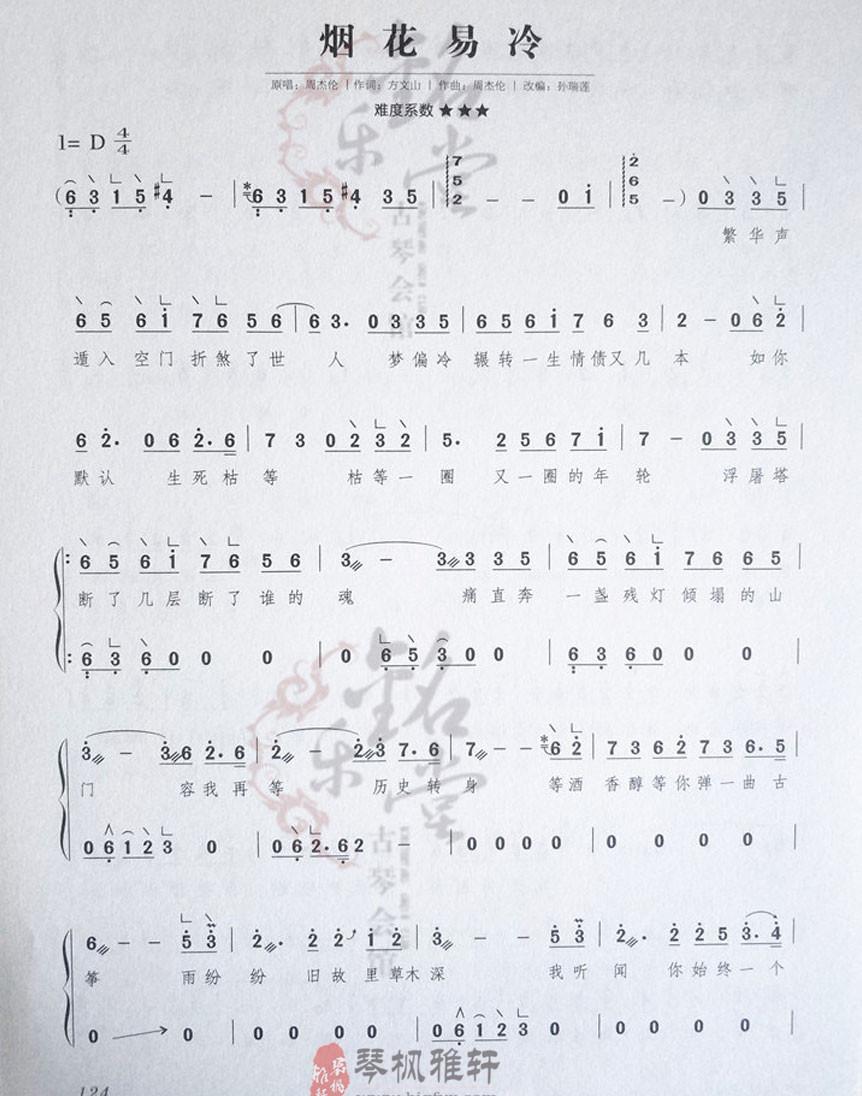 烟花易冷
原唱：周杰伦 | 作词：方文山 | 作曲：周杰伦 | 改编：孙瑞莲
难度系数★★★
1= D 4/4
(6 3 1 5 #4 － | 6 3 1 5 #4 3 5 | 7 5 2 － － 0 i | 2 6 5 －) 0 3 3 5 |
繁华声
6 5 6 i 7 6 5 6 | 6 3. 0 3 3 5 | 6 5 6 i 7 6 3 | 2 － 0 6 2 |
遁入空门折煞了世人 梦偏冷 辗转一生情债又几本 如你
6 2. 0 6 2. 6 | 7 3 0 2 3 2 | 5. 2 5 6 7 i | 7 － 0 3 3 5 |
默认 生死枯等 枯等一圈 又一圈的年轮 浮屠塔
6 5 6 i 7 6 5 6 | 3 － 3 3 3 5 | 6 5 6 i 7 6 6 5 |
断了几层断了谁的魂 痛直奔 一盏残灯倾塌的山
6 3 6 0 0 0 0 | 0 6 5 3 0 0 | 6 3 6 0 0 0 0 |
3 － 3 6 2. 6 | 2 － 2 3 7. 6 | 7 － － 6 2 | 7 3 6 2 7 3 6. 5 |
门 容我再等 历史转身 等酒香醇等你弹一曲古
0 6 1 2 3 0 | 0 6 2. 6 2 － | 0 0 0 0 | 0 0 0 0 |
6 － － 5 3 | 2. 2 2 i 2 | 3 － － 5 3 | 2. 2 2 5 3. 4 |
筝 雨纷纷 旧故里草木深 我听闻 你始终一个
0 → 0 | 0 0 0 0 | 0 6 1 2 3 0 | 0 0 0 0 |
124
琴枫雅轩
铭乐堂
古琴会馆
铭乐堂
古琴会馆